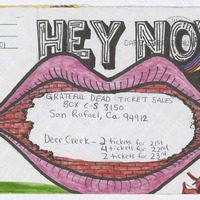 HEY NO
GRATEFUL DEAD TICKET SALES
BOX C-S 8150
San Rafael, Ca. 94912
Deer Creek - 2 tickets for 21st
4 tickets for 22nd
2 tickets for 23rd